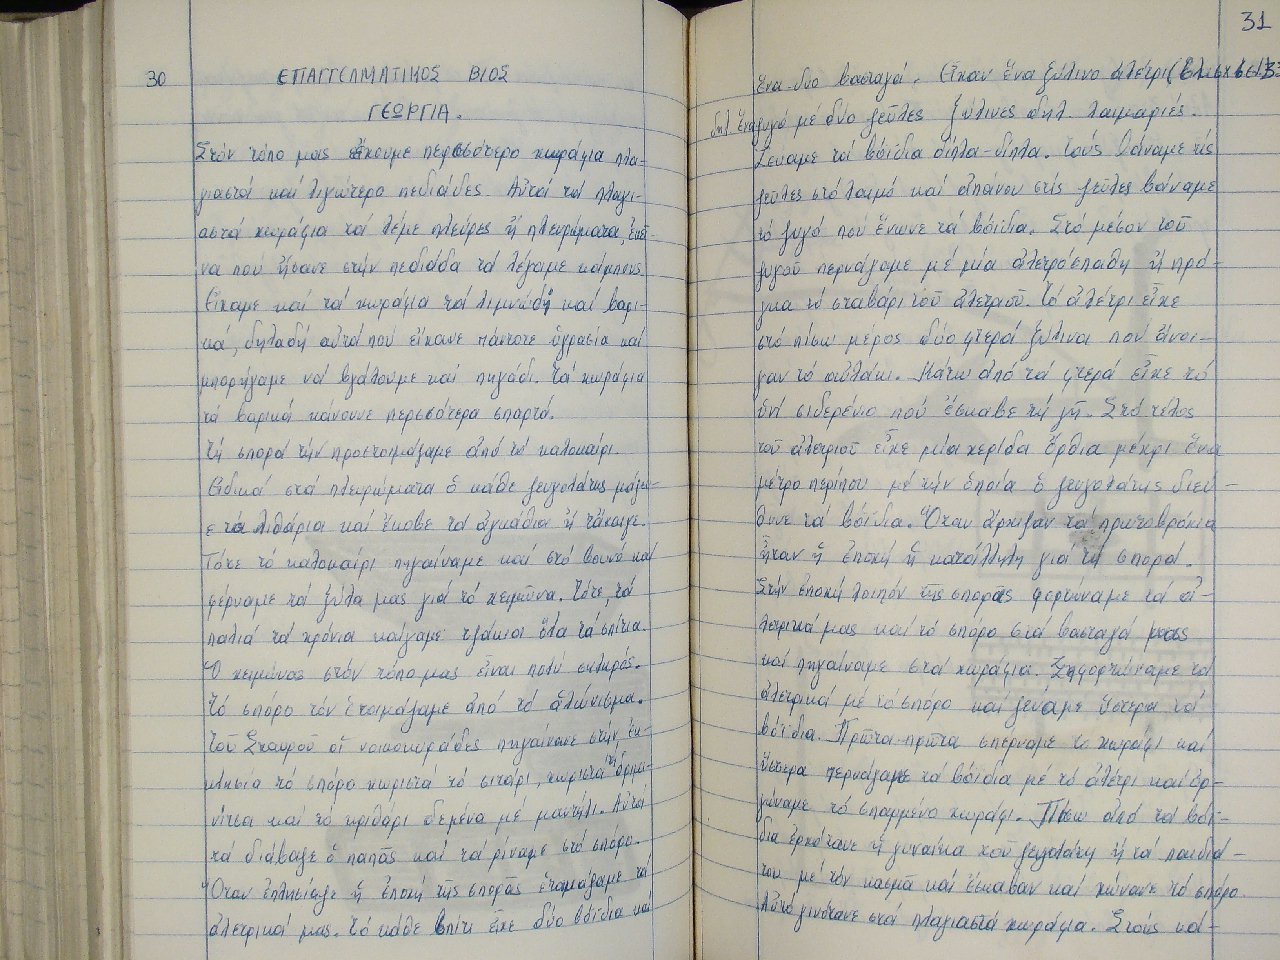 30
ΕΠΑΓΓΕΛΜΑΤΙΚΟΣ ΒΙΟΣ
ΓΕΩΡΓΙΑ.
Στόν τόπο μας ἔχουμε περσσότερο χωράφια πλα-
γιαστά καί λιγώτερο πεδιάδες. Αὐτά τά πλαγι-
αστά χωράφια τά λέμε πλεύρες ἤ πλευρώματα,
να πού ἤσανε στήν πεδιάδα τά λέγαμε κάμπους.
Εἴχαμε καί τά χωράφια τά λιμνώδη καί βαρι-
κά, δηλαδή αὐτά πού εἴχανε πάντοτε ὑγρασία καί
μπορήγαμε νά βγάλουμε καί πηγάδι. Τά χωράφια
τά βαρικά κάνουνε περσσότερα σπαρτά.
Τή σπορά τήν προετοιμάζαμε ἀπό τό καλοκαίρι.
Εἰδικά στά πλευρώματα ὁ κάθε ζευγολάτης μάζευ-
ε τά λιθάρια καί ἔκοβε τά ἀγκάθια ἤ τἄκαιγε.
Τότε τό καλοκαίρι πηγαίναμε καί στό βουνό καί
φέρναμε τά ξύλα μας γιά τό χειμῶνα. Τότε, τά
παλιά τά χρόνια καίγαμε τζάκια ὅλα τά σπίτια.
Ὁ χειμώνας στόν τόπο μας εἶναι πολύ σκληρός.
Τό σπόρο τόν ἑτοιμάζαμε ἀπό τό ἁλώνισμα.
Τοῦ Σταυροῦ οἱ νοικοκυράδες πηγαίνανε στήν ἐκ-
κλησία τό σπόρο χωριστά τό σιτάρι, χωριστά τή βρίμι-
νίτσα καί τό κριθάρι δεμένα μέ μαντήλι. Αὐτά
τά διάβαζε ὁ παπᾶς καί τά ρίναμε στό σπόρο.
Ὅταν ἐπλησίαζε ἡ ἐποχή τῆς σπορᾶς ἑτοιμάζαμε τά
ἀλετρικά μας. Τό κάθε σπίτι εἶχε δύο βόϊδια καί
31
ἕνα δυο βασταγά. Εἴχαν ἕνα ξύλινο ἀλέτρι
δηλ. ἕνα ζυγό μέ δύο ζεῦλες ξύλινες δηλ. λαιμαριές.
Ζεύαμε τά βόϊδια δίπλα-δίπλα. Τούς βάναμε τίς
ζεῦλες στό λαιμό καί ἀπάνου στίς ζεῦλες βάναμε
τό ζυγό πού ἕνωνε τά βόϊδια. Στό μέσον τοῦ
ζυγοῦ περνάγαμε μέ μία ἀλετρόσπαθη ἤ πρό-
γκα τό σταβάρι τοῦ ἀλετριοῦ. Τό ἀλέτρι εἶχε
στό πίσω μέρος δύο φτερά ξύλινα πού ἄνοι-
γαν τό αὐλάκι. Κάτω ἀπό τά φτερά εἶχε τό
ὑνί σιδερένιο πού ἔσκαβε τή γῆ. Στό τέλος
τοῦ ἀλετριοῦ εἶχε μία χερίδα ὄρθια μέχρι ἕνα
μέτρο περίπου μέ τήν ὁποία ὁ ζευγολάτης διεύ-
θυνε τά βόϊδια. Ὅταν ἄρχιζαν τά πρωτοβρόχια
ἦταν ἡ ἐποχή ἡ κατάλληλη γιά τή σπορά.
Στήν ἐποχή λοιπόν τῆς σπορᾶς φορτώναμε τά ἀ-
λετρικά μας καί τό σπόρο στά βασταγά μας
καί πηγαίναμε στά χωράφια. Ξεφορτώναμε τά
ἀλετρικά μέ τό σπόρο καί ζεύαμε ὕστερα τά
βόϊδια. Πρῶτα-πρῶτα σπέρναμε τό χωράφι καί
ὕστερα περνάγαμε τά βόϊδια μέ τό ἀλέτρι καί ὀρ-
γώναμε τό σπαρμένο χωράφι. Πίσω ἀπό τά βόϊ-
δια ἐρχότανε ἡ γυναίκα τοῦ ζευγολάτη ἤ τά παιδιά
του μέ τόν κασμᾶ καί ἔσκαβαν καί χώνανε τό σπόρο.
Αὐτό γινότανε στά πλαγιαστά χωράφια. Στούς κά-